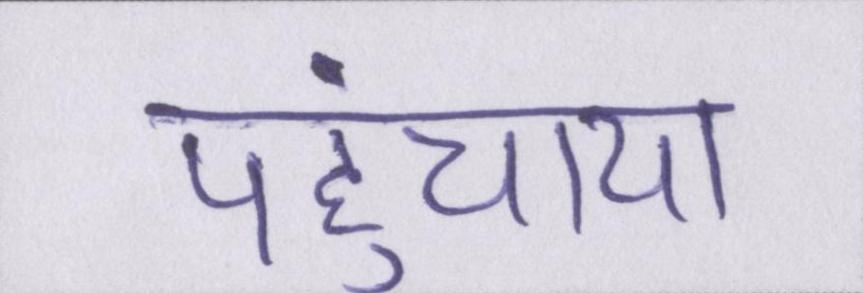 पहुंचाया